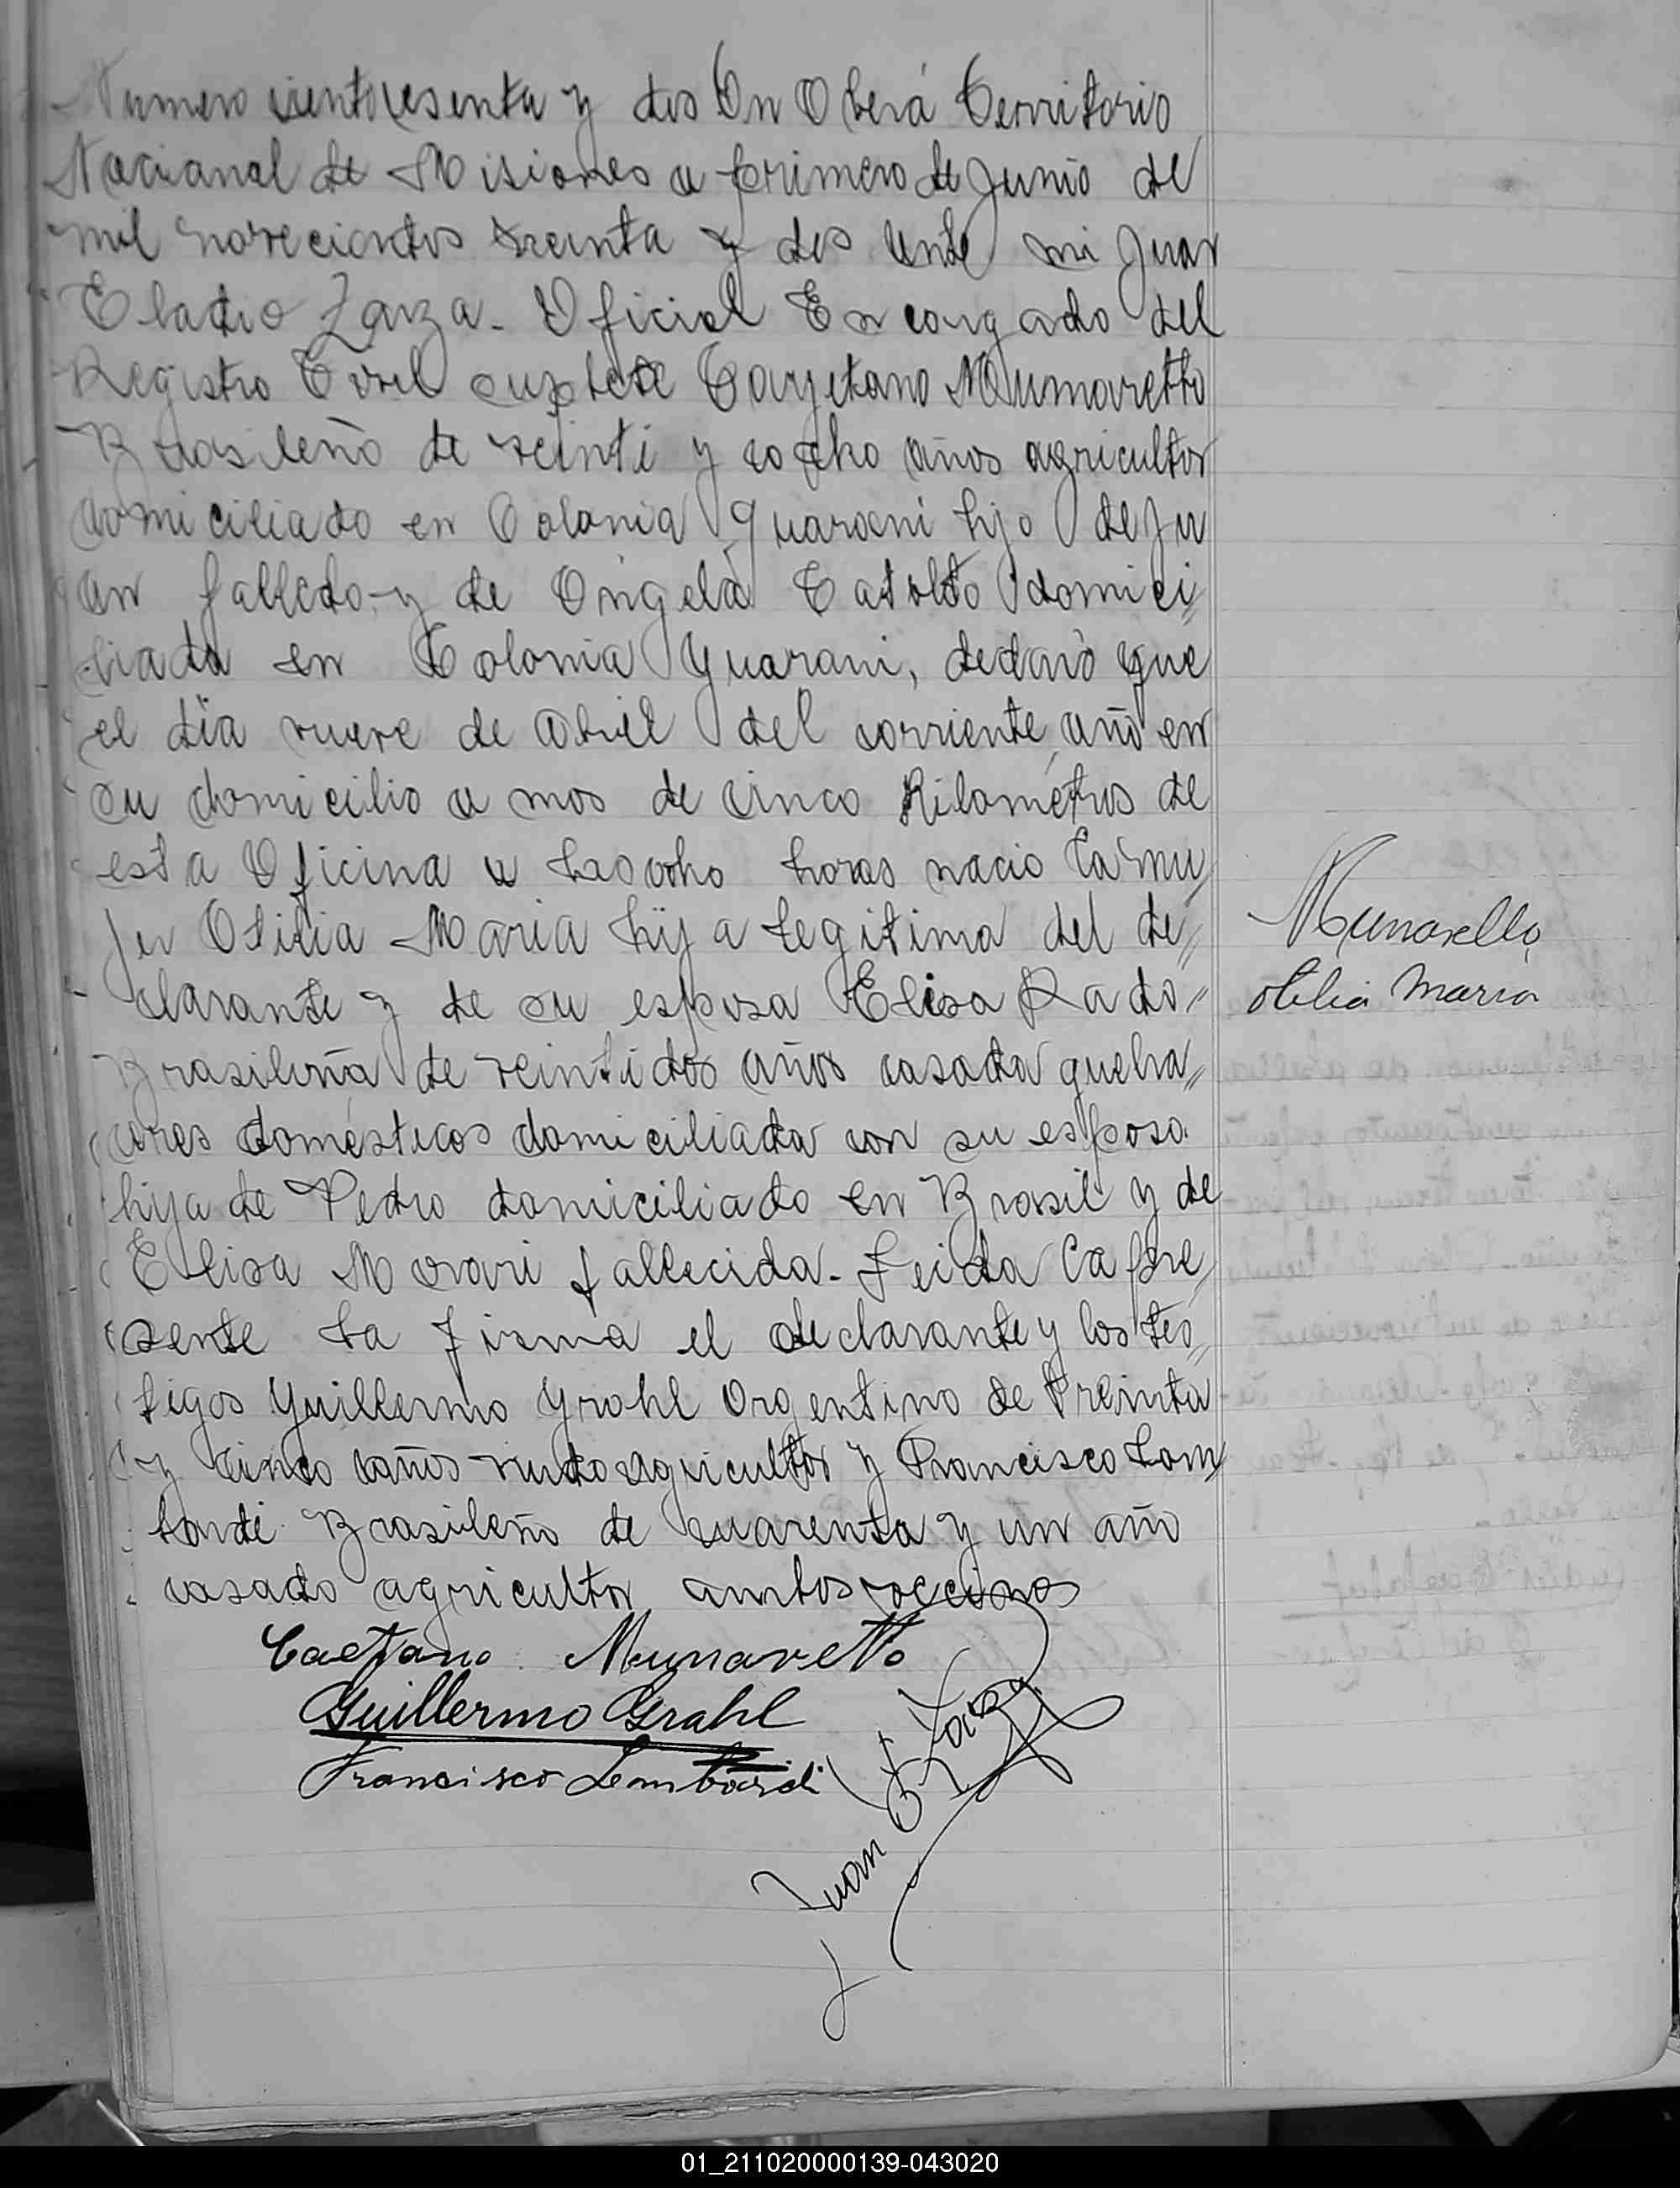 Numero cientosesenta y dos En Oberá Territorio
Nacional de Misiones a primero de Junio de
mil novecientos treinta y dos ante mi Juan
Eladio Zarza. Oficial Encargado del
Registro Civil suplete Cayetano Mumaretto
Brasileño de veinti y ocho años agricultor
domiciliado en Colonia Guarani hijo de Ju
an falledo y de Angela Catolto domici//
liada en Colonia Guarani, declaró que
el dia nueve de Abril del corriente año en
su domicilio a mas de cinco Kilométros de
esta Oficina a las ocho horas nacio la mu
jer Otilia Maria hija legitima del de//
clarante y de su esposa Elisa Rado//
Brasileña de veintidos años casada queha//
ceres domésticos domiciliada con su esposo.
hija de Pedro domiciliado en Brasil y de
Elisa Morari fallecida. Leida la pre//
sente la firma el declarante y los tes//
tigos Guillermo Grahl Argentino de treinta
y cinco años viudo agricultor y Francisco Lom//
bardi Brasileño de cuarenta y un año
casado agricultor ambos veccinos
Munarello,
Otilia Maria
Caetano Munaretto
Guillermo Grahl
Francisco Lombardi
Juan E Zarza
01_211020000139-043020